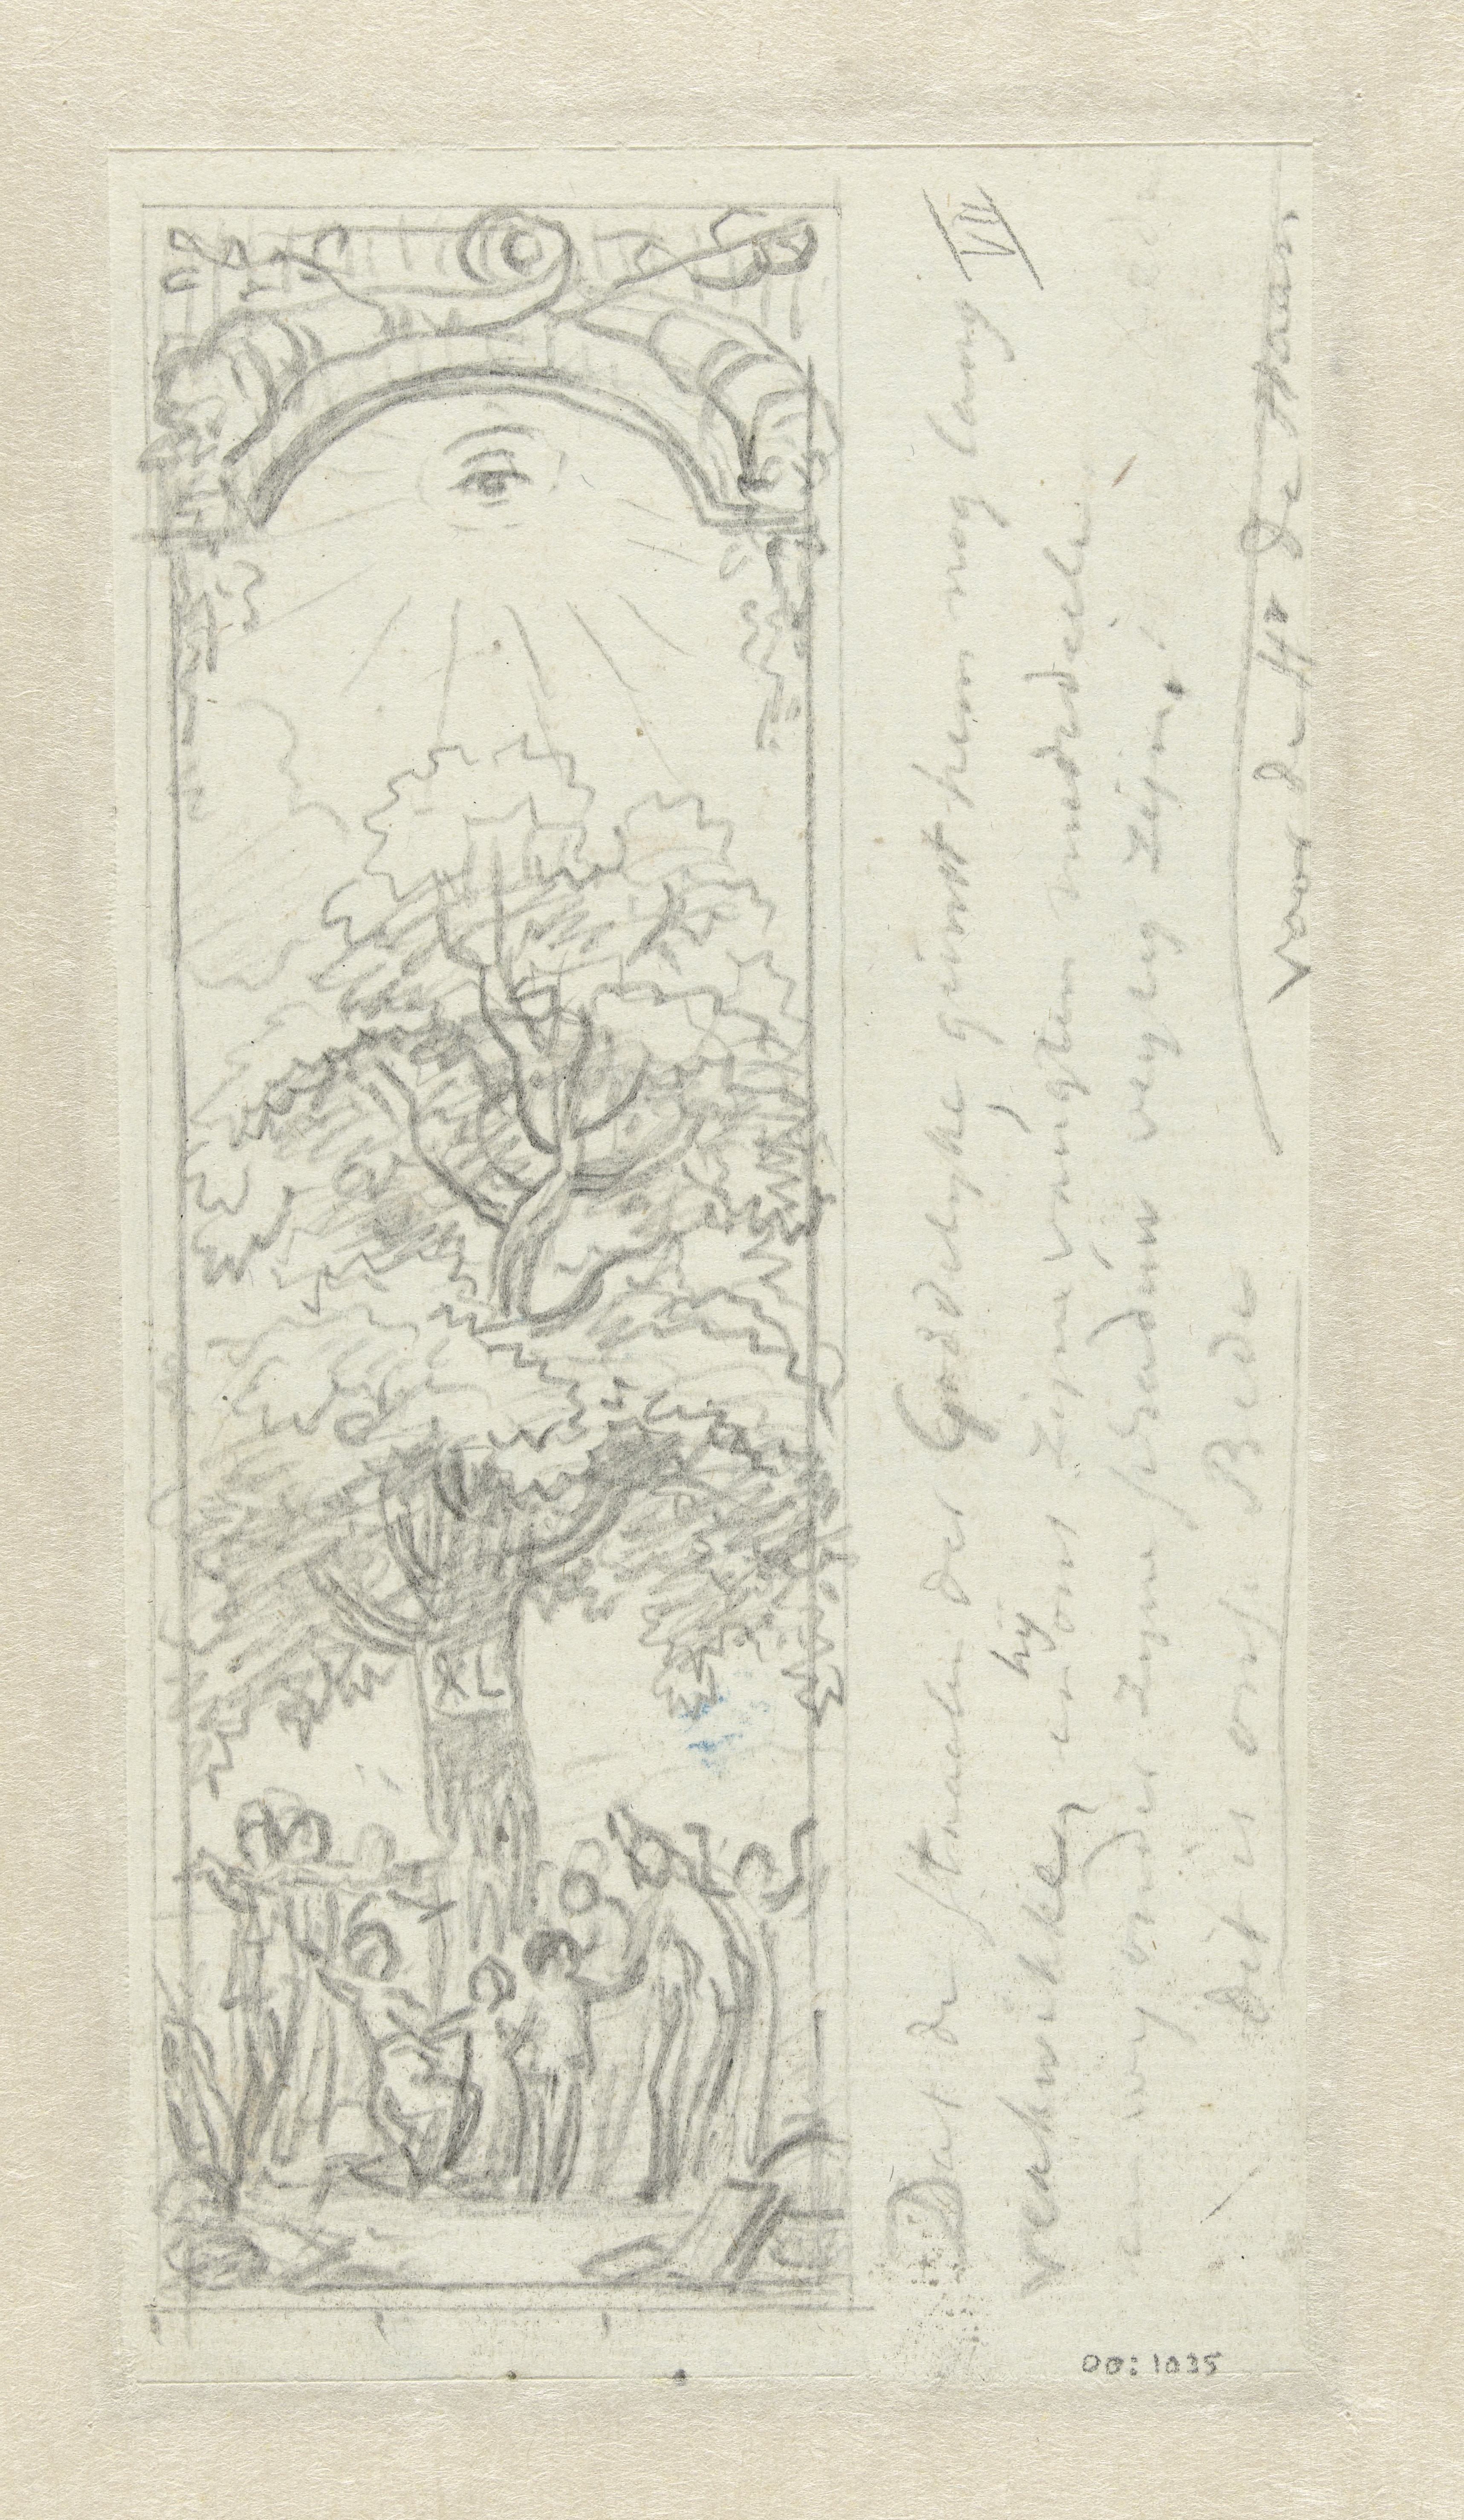 VII
Dat de straalen der Goddelyke gunst hem nog lang
verkwikken,
hij
ons zijne vrugten mededeele
en wy onder zyne schaduw veylig zijn!
dit is onse Bede
voor de Hr de Haan.
XL
00:1035